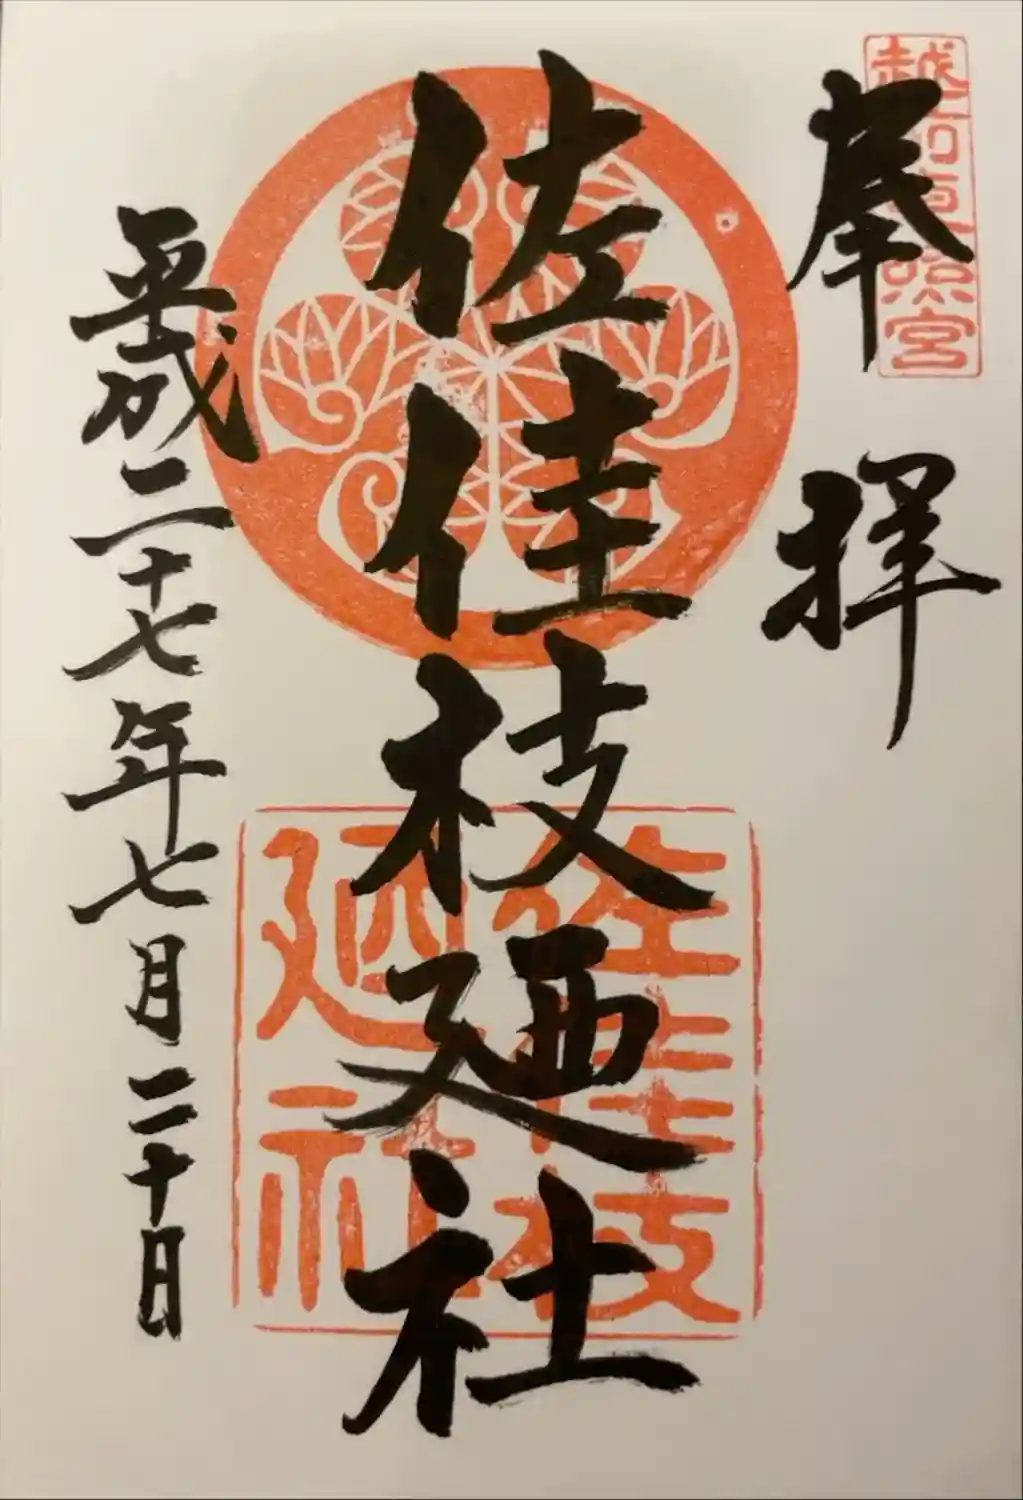 奉拝
越前東照宮
佐佳枝廼社
佐佳枝
廼社
平成二十七年七月二十日